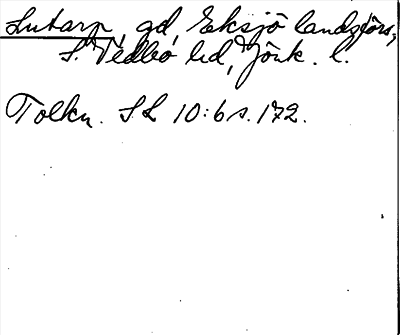 Lutarp, gd, Eksjö landsförs,
S. Vedbo hd, Jönk. l.
Tolkn. SL 10:6 s. 172.